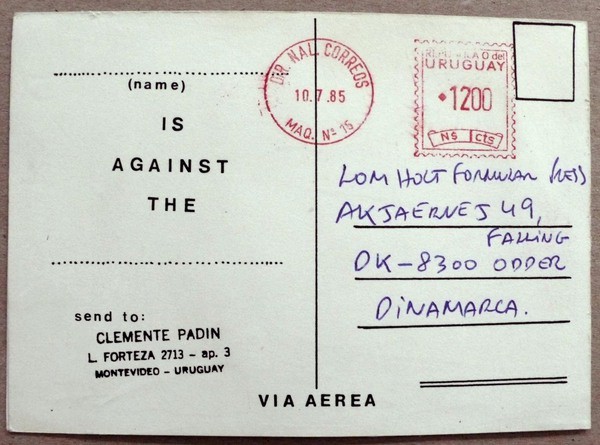 (name)
IS
AGAINST
THE
send to:
CLEMENTE PADIN
L. FORTEZA 2713 - ap. 3
MONTEVIDEO - URUGUAY
DIR. NAL. CORREOS
10.7.85
MAQ. Nº 15
REPUBLICA O del
URUGUAY
•1200
N$ cts
LOMHOLT FORMULAR PRESS
AKJAERNEJ 49,
FALLING
DK-8300 ODDER
DINAMARCA.
VIA AEREA